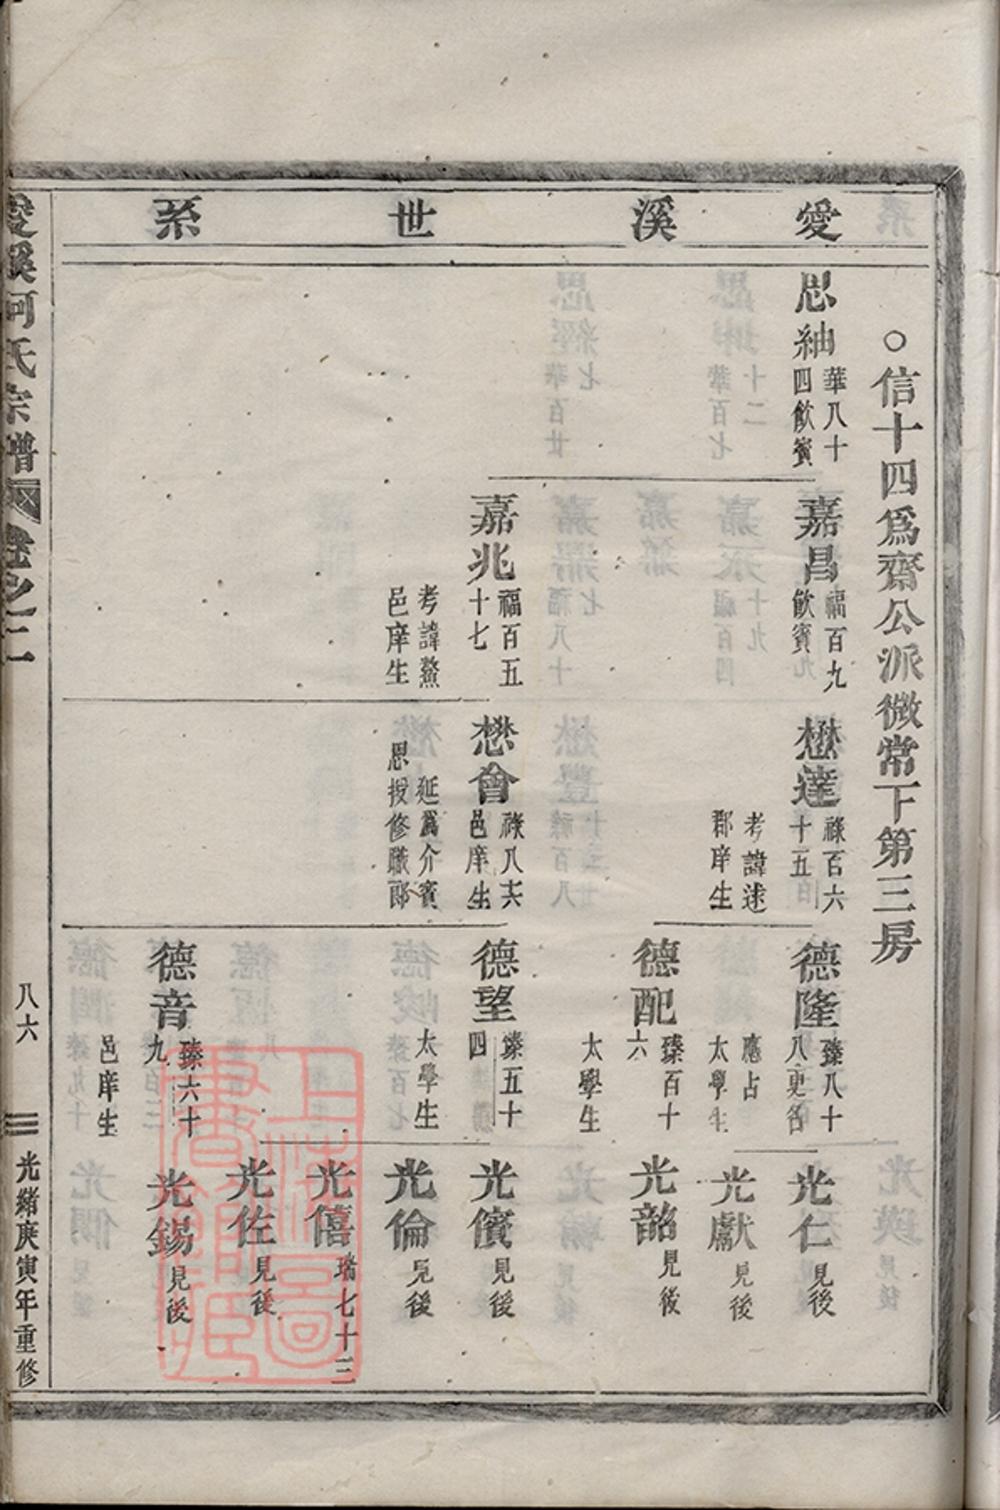 愛溪世系
○信十四爲齋公派微常下第三房
思紬
華八十
四飲賓
嘉昌
福百九
飲賓
嘉兆
福百五
十七
考諱鰲
邑庠生
懋達
祿百六
十五
考諱逑
郡庠生
懋會
祿八六
邑庠生
延爲介賓
恩授修職郎
德隆
臻八十
八更名
應占
太學生
德配
臻百十
六
太學生
德望
臻五十
四
太學生
德音
臻六十
九
邑庠生
光仁
見後
光獻
見後
光韶
見後
光儐
見後
光倫
見後
光僖
瑨七十三
光佐
見後
光錫
見後
愛溪何氏宗譜
卷之二
八六
光緒庚寅年重修
上海圖書館藏